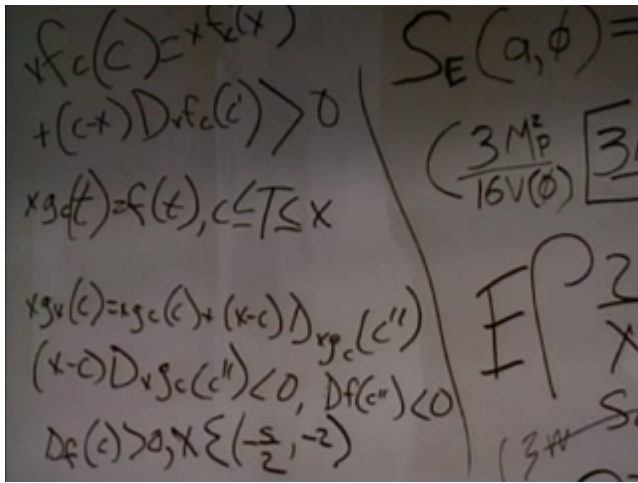 ₓf_c(c)=ₓf_c(x)
+(c-x)Dₓf_c(c')>0
ₓg_c(t)=f(t), c≤T≤x
ₓg_x(c)=ₓg_c(c)+(x-c)Dₓg_c(c'')
(x-c)Dₓg_c(c'')<0, Df(c'')<0
Df(c)>0, x ξ(-5/2, -2)
S_E(a,φ)=
(3M²_P/16V(φ) [3
2
X
(3